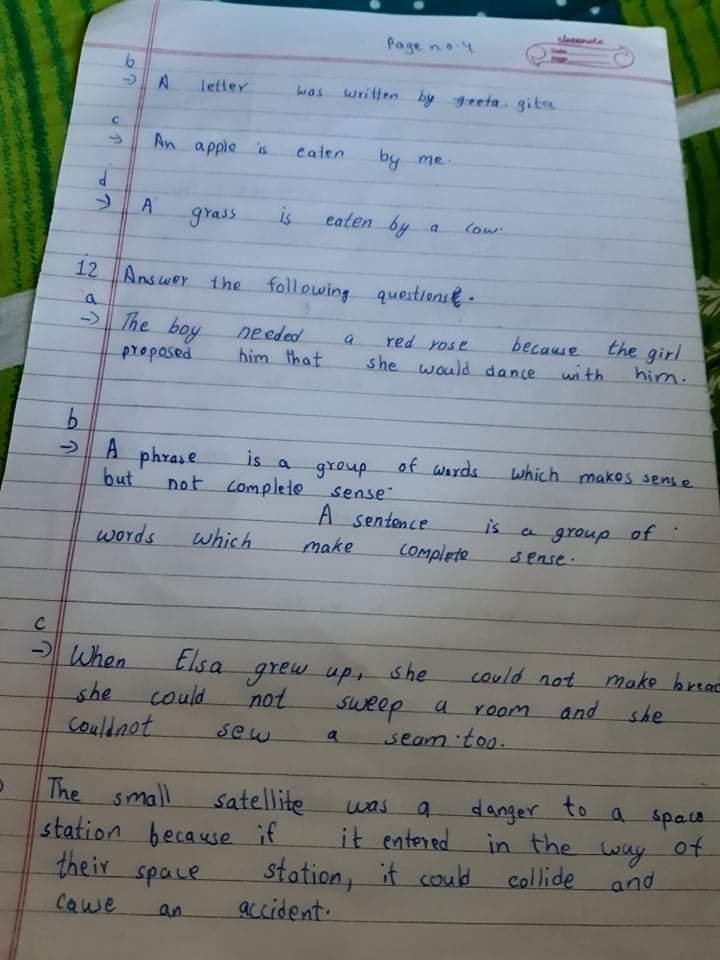 Page no.4
classmate
Date
Page
b
→ A letter was written by geeta. gita
c
→ An apple is eaten by me.
d
→ A grass is eaten by a cow.
12 Answer the following questions.
a
→ The boy needed a red rose because the girl
proposed him that she would dance with him.
b
→ A phrase is a group of words which makes sense
but not complete sense.
A sentence is a group of
words which make complete sense.
c
→ When Elsa grew up, she could not make bread
she could not sweep a room and she
couldnot sew a seam too.
The small satellite was a danger to a space
station because if it entered in the way of
their space station, it could collide and
cause an accident.